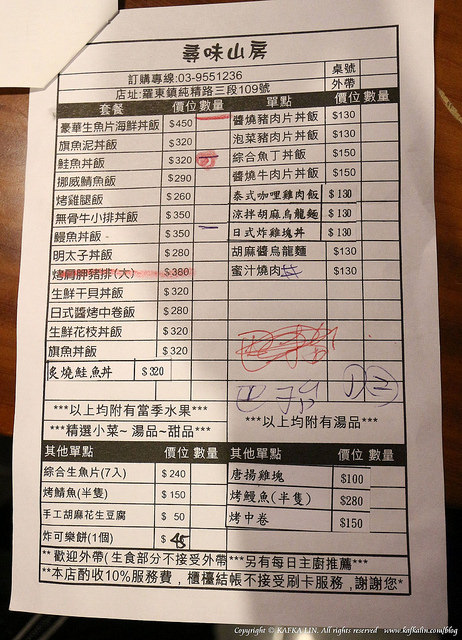 尋味山房
訂購專線:03-9551236 桌號
店址:羅東鎮純精路三段109號 外帶
套餐 價位 數量 單點 價位 數量
豪華生魚片海鮮丼飯 $450 醬燒豬肉片丼飯 $130
旗魚泥丼飯 $320 泡菜豬肉片丼飯 $130
鮭魚丼飯 $320 綜合魚丁丼飯 $150
挪威鯖魚飯 $290 醬燒牛肉片丼飯 $150
烤雞腿飯 $260 泰式咖哩雞肉飯 $130
無骨牛小排丼飯 $350 涼拌胡麻烏龍麵 $130
鰻魚丼飯 $350 日式炸雞塊丼 $130
明太子丼飯 $280 胡麻醬烏龍麵 $130
烤肩胛豬排(大) $380 蜜汁燒肉丼 $130
生鮮干貝丼飯 $320
日式醬烤中卷飯 $280
生鮮花枝丼飯 $320
旗魚丼飯 $320
炙燒鮭魚丼 $320
***以上均附有當季水果***
***精選小菜~湯品~甜品*** ***以上均附有湯品***
其他單點 價位 數量 其他單點 價位 數量
綜合生魚片(7入) $240 唐揚雞塊 $100
烤鯖魚(半隻) $150 烤鰻魚(半隻) $280
手工胡麻花生豆腐 $50 烤中卷 $150
炸可樂餅(1個) $45
**歡迎外帶(生食部分不接受外帶***另有每日主廚推薦***
**本店酌收10%服務費,櫃檯結帳不接受刷卡服務,謝謝您*
Copyright © KAFKA LIN. All rights reserved www.kafkalin.com/blog